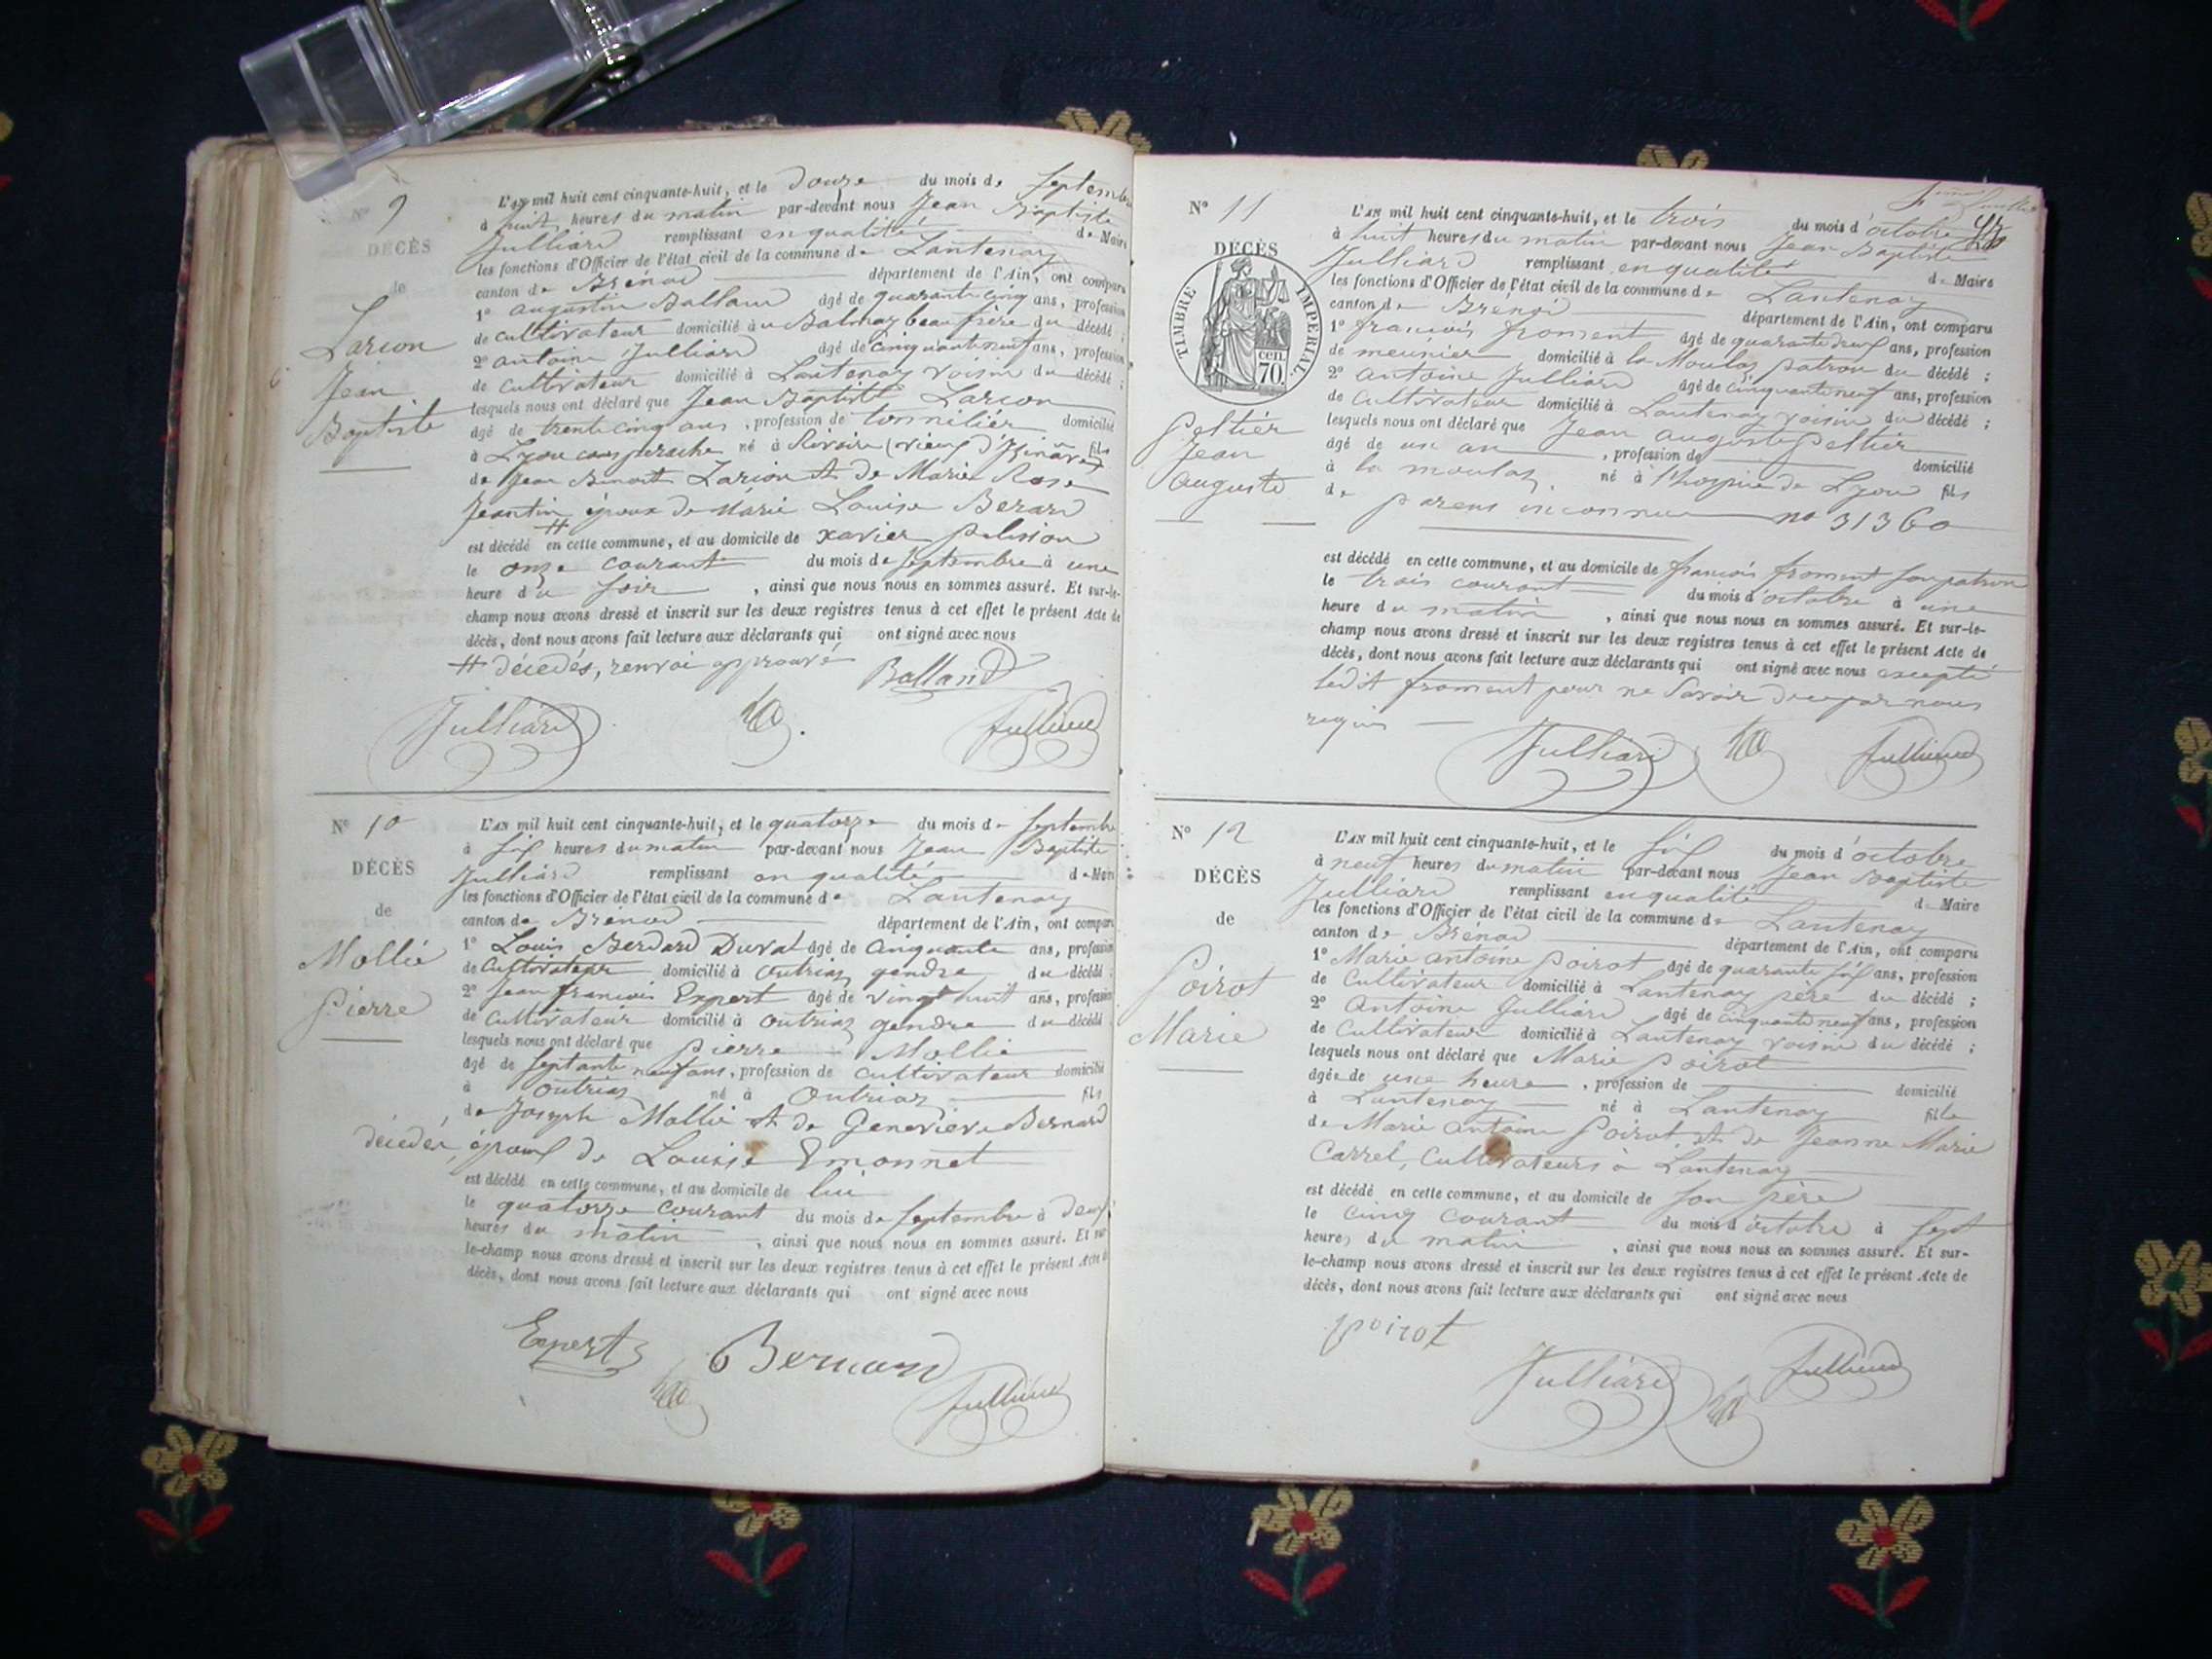 N° 9
DÉCÈS
Larcon
Jean
Baptiste
L'AN mil huit cent cinquante-huit, et le douze du mois de septembre
à huit heures du matin par-devant nous Jean Baptiste
Julliard remplissant en qualité de Maire
les fonctions d'Officier de l'état civil de la commune de Lantenay
canton de Brénod département de l'Ain, ont comparu
1° augustin Balland âgé de quarante cinq ans, profession
de cultivateur domicilié au Balmay beau frère du décédé ;
2° antoine Julliard âgé de cinquante neuf ans, profession
de cultivateur domicilié à Lantenay voisin du décédé ;
lesquels nous ont déclaré que Jean Baptiste Larcon
âgé de trente cinq ans, profession de tonnelier domicilié
à Lyon né à Rivoire (vieux d'Izinave) fils
de Jean Benoit Larcon et de Marie Rose
Jeantin époux de Marie Louise Berard
#
est décédé en cette commune, et au domicile de xavier
le onze courant du mois de septembre à une
heure du soir, ainsi que nous nous en sommes assuré. Et sur-le-
champ nous avons dressé et inscrit sur les deux registres tenus à cet effet le présent Acte de
décès, dont nous avons fait lecture aux déclarants qui ont signé avec nous
# décedés, renvoi approuvé Balland
Julliard Jullien
N° 10
DÉCÈS
de
Mollié
Pierre
L'AN mil huit cent cinquante-huit, et le quatorze du mois de septembre
à six heures du matin par-devant nous Jean Baptiste
Julliard remplissant en qualité de Maire
les fonctions d'Officier de l'état civil de la commune de Lantenay
canton de Brénod département de l'Ain, ont comparu
1° Louis Bernard Duval âgé de cinquante ans, profession
de cultivateur domicilié à outriaz gendre du décédé ;
2° Jean francois Expert âgé de vingt huit ans, profession
de cultivateur domicilié à outriaz gendre du décédé
lesquels nous ont déclaré que Pierre Mollié
âgé de septante neuf ans, profession de cultivateur domicilié
à outriaz né à Outriaz fils
de Joseph Mollié et de Genevieve Bernard
décedés, époux de Louise Emonnet
est décédé en cette commune, et au domicile de lui
le quatorze courant du mois de septembre à deux
heures du matin, ainsi que nous nous en sommes assuré. Et sur
le-champ nous avons dressé et inscrit sur les deux registres tenus à cet effet le présent Acte de
décès, dont nous avons fait lecture aux déclarants qui ont signé avec nous
Expert Bernard
Jullien
N° 11
DÉCÈS
TIMBRE IMPERIAL
cen.
70.
Peltier
Jean
Auguste
L'AN mil huit cent cinquante-huit, et le trois du mois d'octobre
à huit heures du matin par-devant nous Jean Baptiste
Julliard remplissant en qualité de Maire
les fonctions d'Officier de l'état civil de la commune de Lantenay
canton de Brénod département de l'Ain, ont comparu
1° francois froment âgé de quarante deux ans, profession
de meunier domicilié à la Moulaz patron du décédé ;
2° antoine Julliard âgé de cinquante neuf ans, profession
de cultivateur domicilié à Lantenay voisin du décédé ;
lesquels nous ont déclaré que Jean auguste Peltier
âgé de un an, profession de domicilié
à la moulaz né à l'hospice de Lyon fils
de parens inconnus n° 31360
est décédé en cette commune, et au domicile de francois froment son patron
le trois courant du mois d'octobre à une
heure du matin, ainsi que nous nous en sommes assuré. Et sur-le-
champ nous avons dressé et inscrit sur les deux registres tenus à cet effet le présent Acte de
décès, dont nous avons fait lecture aux déclarants qui ont signé avec nous excepté
ledit froment pour ne savoir de ce par nous
requis
Julliard Jullien
N° 12
DÉCÈS
de
Poirot
Marie
L'AN mil huit cent cinquante-huit, et le six du mois d'octobre
à neuf heures du matin par-devant nous Jean Baptiste
Julliard remplissant en qualité de Maire
les fonctions d'Officier de l'état civil de la commune de Lantenay
canton de Brénod département de l'Ain, ont comparu
1° Marie antoine Poirot âgé de quarante six ans, profession
de cultivateur domicilié à Lantenay père du décédé ;
2° Antoine Julliard âgé de cinquante neuf ans, profession
de cultivateur domicilié à Lantenay voisin du décédé ;
lesquels nous ont déclaré que Marie Poirot
âgée de une heure, profession de domicilié
à Lantenay né à Lantenay fille
de Marie Antoine Poirot et de Jeanne Marie
Carrel, cultivateurs à Lantenay
est décédé en cette commune, et au domicile de son père
le cinq courant du mois d'octobre à sept
heures du matin, ainsi que nous nous en sommes assuré. Et sur-
le-champ nous avons dressé et inscrit sur les deux registres tenus à cet effet le présent Acte de
décès, dont nous avons fait lecture aux déclarants qui ont signé avec nous
poirot
Julliard Jullien